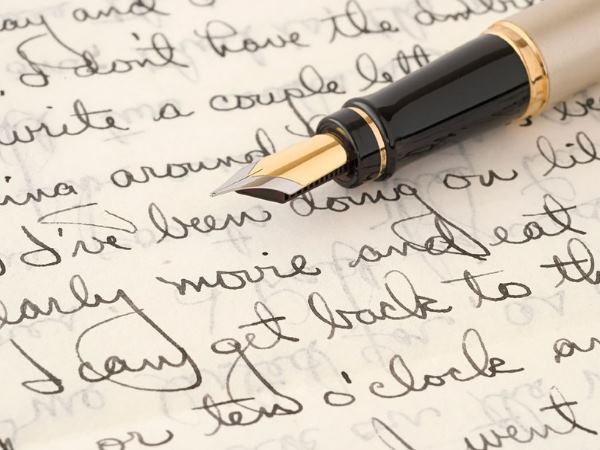 and
I don't have the
write a couple
around
I've been doing on
early movie and eat
I can get back to
or ten o'clock
I went